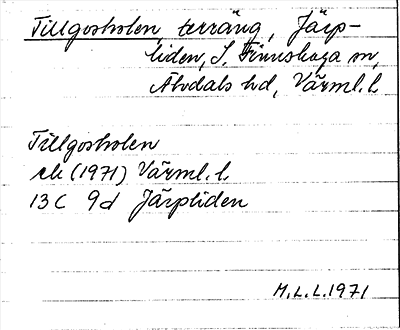 Tillgosholen, terräng, Järp-
liden, S. Finnskoga sn,
Älvdals hd, Värml. l.
Tillgosholen
ek (1971) Värml. l.
13C 9d Järpliden
M.L.L. 1971